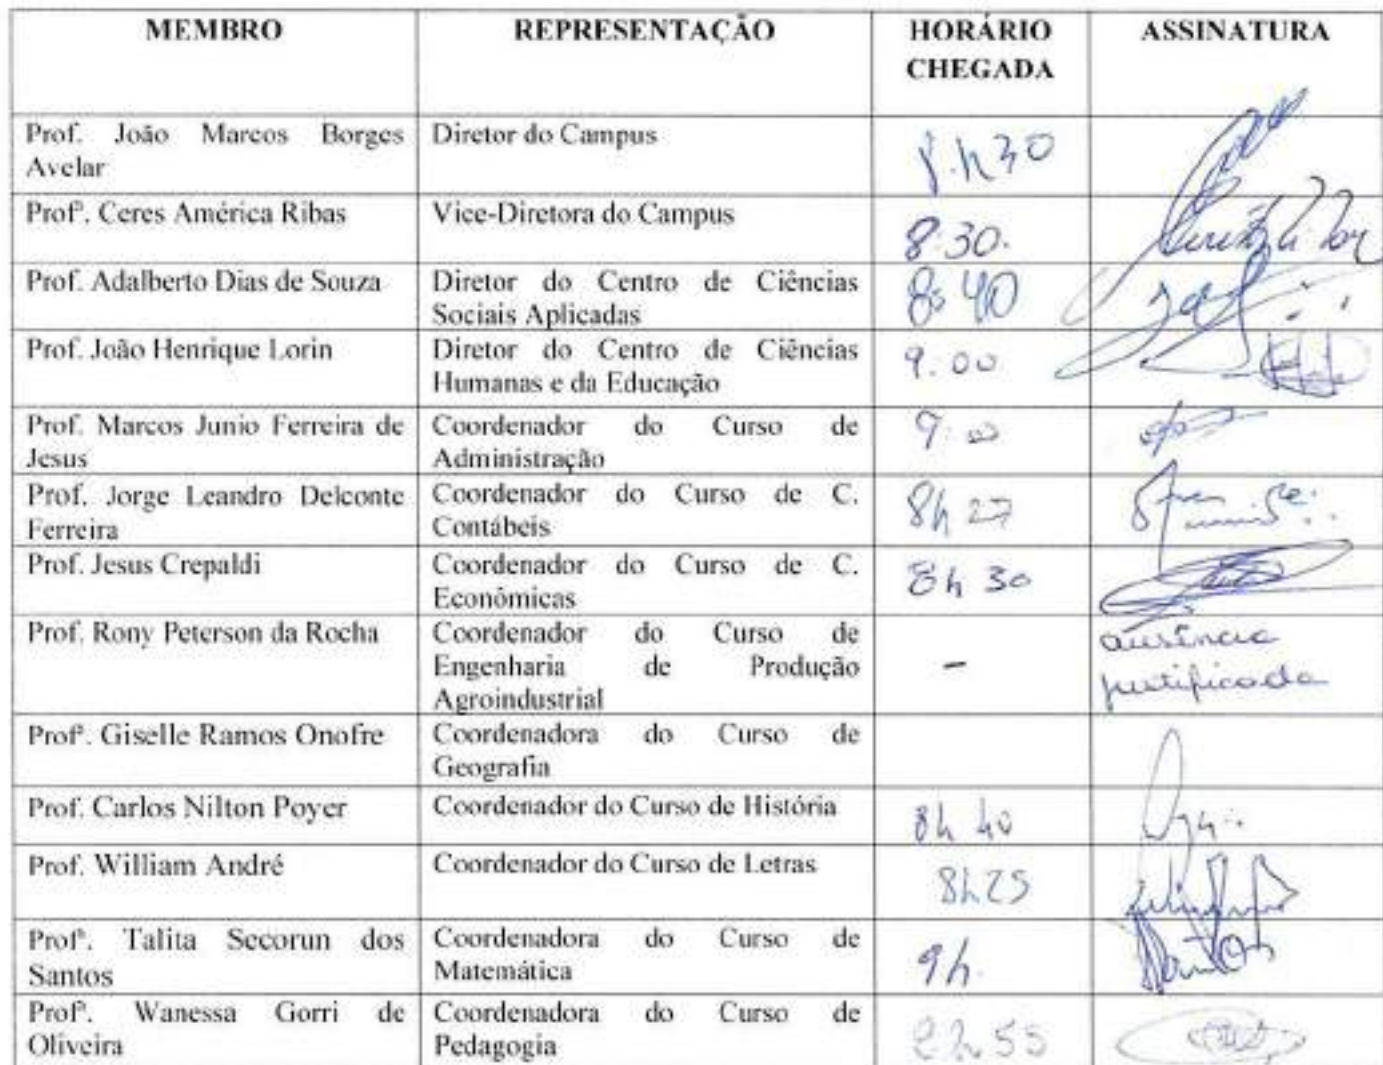 MEMBRO REPRESENTAÇÃO HORÁRIO ASSINATURA
CHEGADA
Prof. João Marcos Borges Diretor do Campus
Avelar
8:h30
Profª. Ceres América Ribas Vice-Diretora do Campus
8:30.
Prof. Adalberto Dias de Souza Diretor do Centro de Ciências 8:40
Sociais Aplicadas
Prof. João Henrique Lorin Diretor do Centro de Ciências 9:00
Humanas e da Educação
Prof. Marcos Junio Ferreira de Coordenador do Curso de 9:00
Jesus Administração
Prof. Jorge Leandro Delconte Coordenador do Curso de C. 8h 27
Ferreira Contábeis
Prof. Jesus Crepaldi Coordenador do Curso de C. 8h 30
Econômicas
Prof. Rony Peterson da Rocha Coordenador do Curso de - ausência
Engenharia de Produção justificada
Agroindustrial
Profª. Giselle Ramos Onofre Coordenadora do Curso de
Geografia
Prof. Carlos Nilton Poyer Coordenador do Curso de História 8h 40
Prof. William André Coordenador do Curso de Letras 8h25
Profª. Talita Secorun dos Coordenadora do Curso de 9h.
Santos Matemática
Profª. Wanessa Gorri de Coordenadora do Curso de
Oliveira Pedagogia